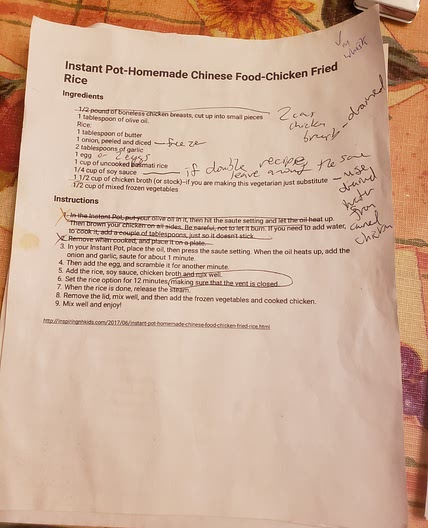 Instant Pot-Homemade Chinese Food-Chicken Fried
Rice
Ingredients
1/2 pound of boneless chicken breasts, cut up into small pieces
2 cans chicken breast - drained
1 tablespoon of olive oil.
Rice:
1 tablespoon of butter
1 onion, peeled and diced - freeze
2 tablespoons of garlic
1 egg or 2 eggs
1 cup of uncooked basmati rice
1/4 cup of soy sauce if double recipe leave the same
1 1/2 cup of chicken broth (or stock)-if you are making this vegetarian just substitute - use drained water from canned chicken
1/2 cup of mixed frozen vegetables
Instructions
1. In the Instant Pot, put your olive oil in it, then hit the saute setting and let the oil heat up.
Then brown your chicken on all sides. Be careful, not to let it burn. If you need to add water,
to cook it, add a couple of tablespoons, just so it doesn't stick.
2. Remove when cooked, and place it on a plate.
3. In your Instant Pot, place the oil, then press the saute setting. When the oil heats up, add the
onion and garlic, saute for about 1 minute.
4. Then add the egg, and scramble it for another minute.
5. Add the rice, soy sauce, chicken broth and mix well.
6. Set the rice option for 12 minutes, making sure that the vent is closed.
7. When the rice is done, release the steam.
8. Remove the lid, mix well, and then add the frozen vegetables and cooked chicken.
9. Mix well and enjoy!